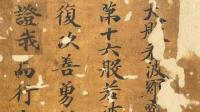 大般若波羅
第十六般若波
復次善勇
證我而行